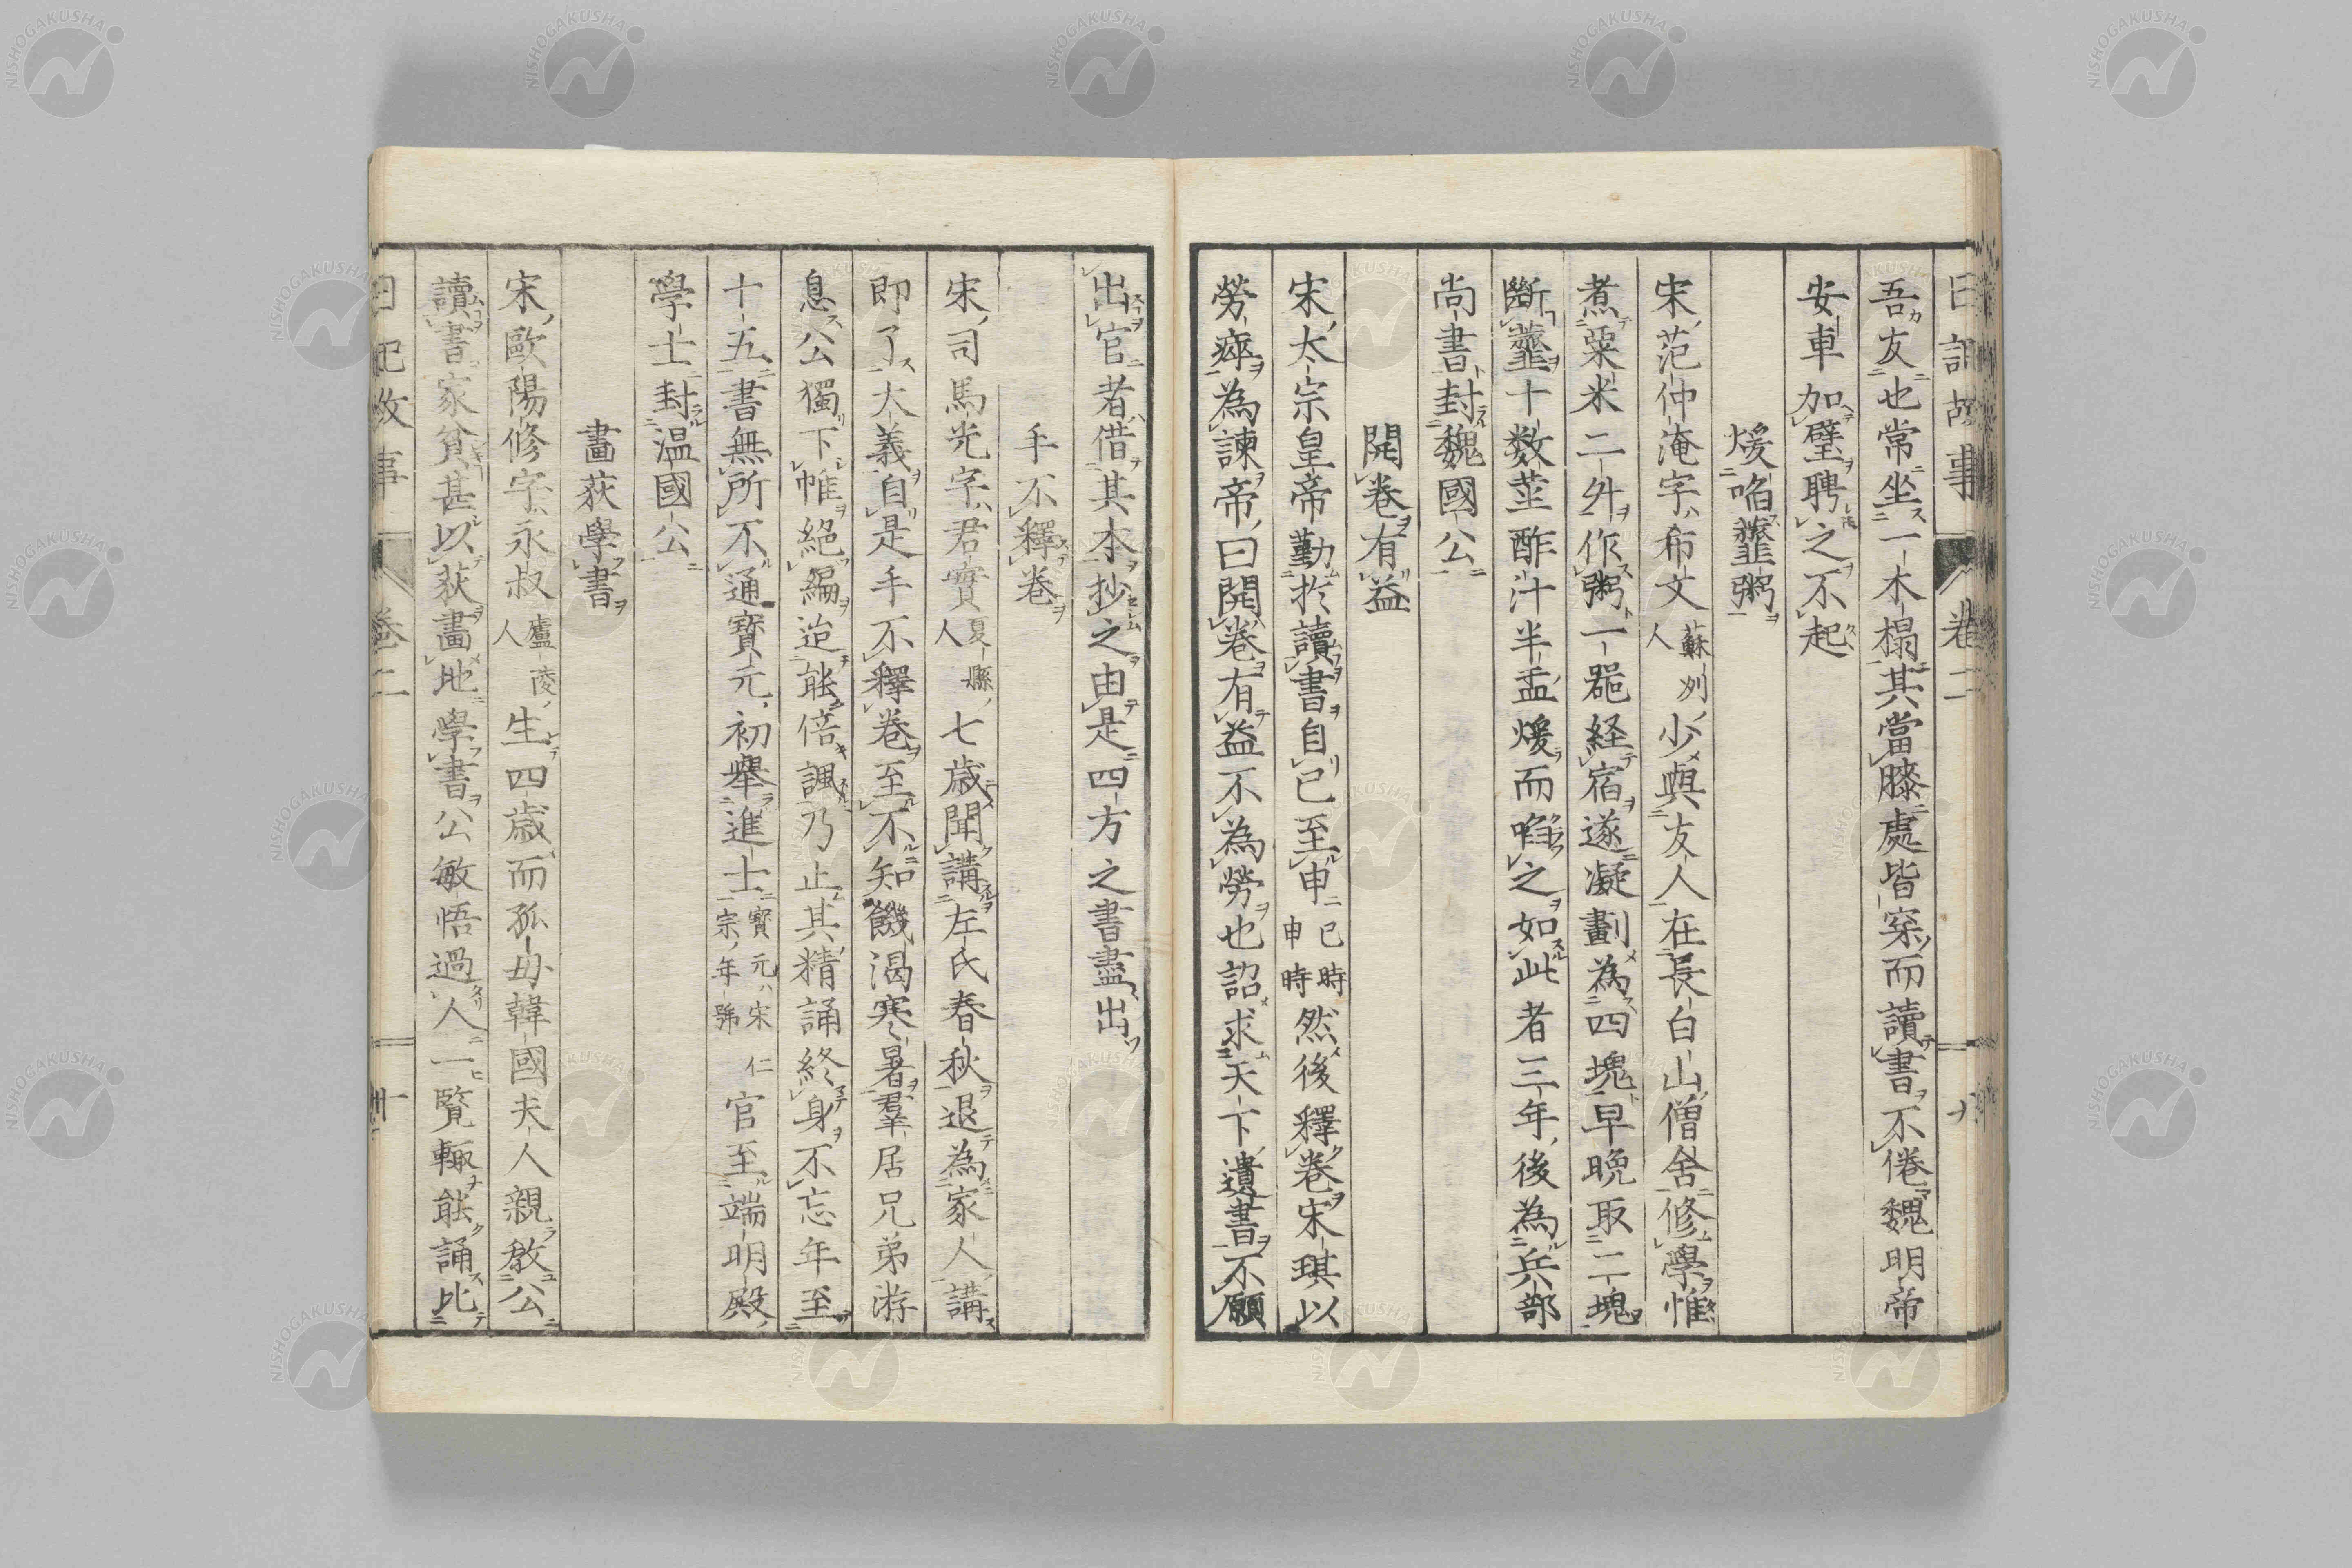 吾友也常坐一木榻其當膝處皆穿而讀書不倦魏明帝
安車加璧聘之不起
煖啗虀粥
宋范仲淹字希文蘇州人少與友人在長白山僧舍修學惟
煮粟米二升作粥一器経宿遂凝劃為四塊早晩取二塊
斷虀十数莖酢汁半盂煖而啗之如此者三年後為兵部
尚書封魏國公
開卷有益
宋太宗皇帝勤於讀書自巳至申巳時申時然後釋卷宋琪以
勞瘁為諫帝曰開卷有益不為勞也詔求天下遺書不願
出官者借其本抄之由是四方之書盡出
手不釋卷
宋司馬光字君實夏縣人七歳聞講左氏春秋退為家人講
即了大義自是手不釋卷至不知饑渇寒暑羣居兄弟游
息公獨下帷絕編迨能倍諷乃止其精誦終身不忘年至
十五書無所不通寳元初舉進士寳元宋仁宗年號官至端明殿
學士封温國公
畫荻學書
宋歐陽修字永叔廬陵人生四歳而孤母韓國夫人親敎公
讀書家貧甚以荻畫地學書公敏悟過人一覧輙能誦比
日記故事
卷二
NISHOGAKUSHA